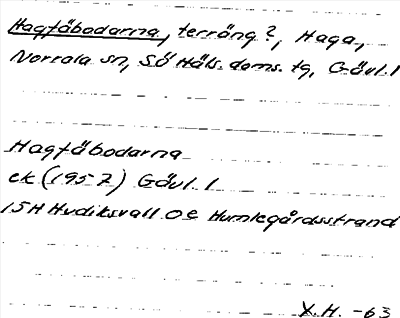 Hagfäbodarna, terräng?, Haga,
Norrala sn, Sö Häls. doms. tg, Gävl. l
Hagfäbodarna
ek (1957) Gävl. l
15H Hudiksvall 0e Humlegårdsstrand
X.H. -63